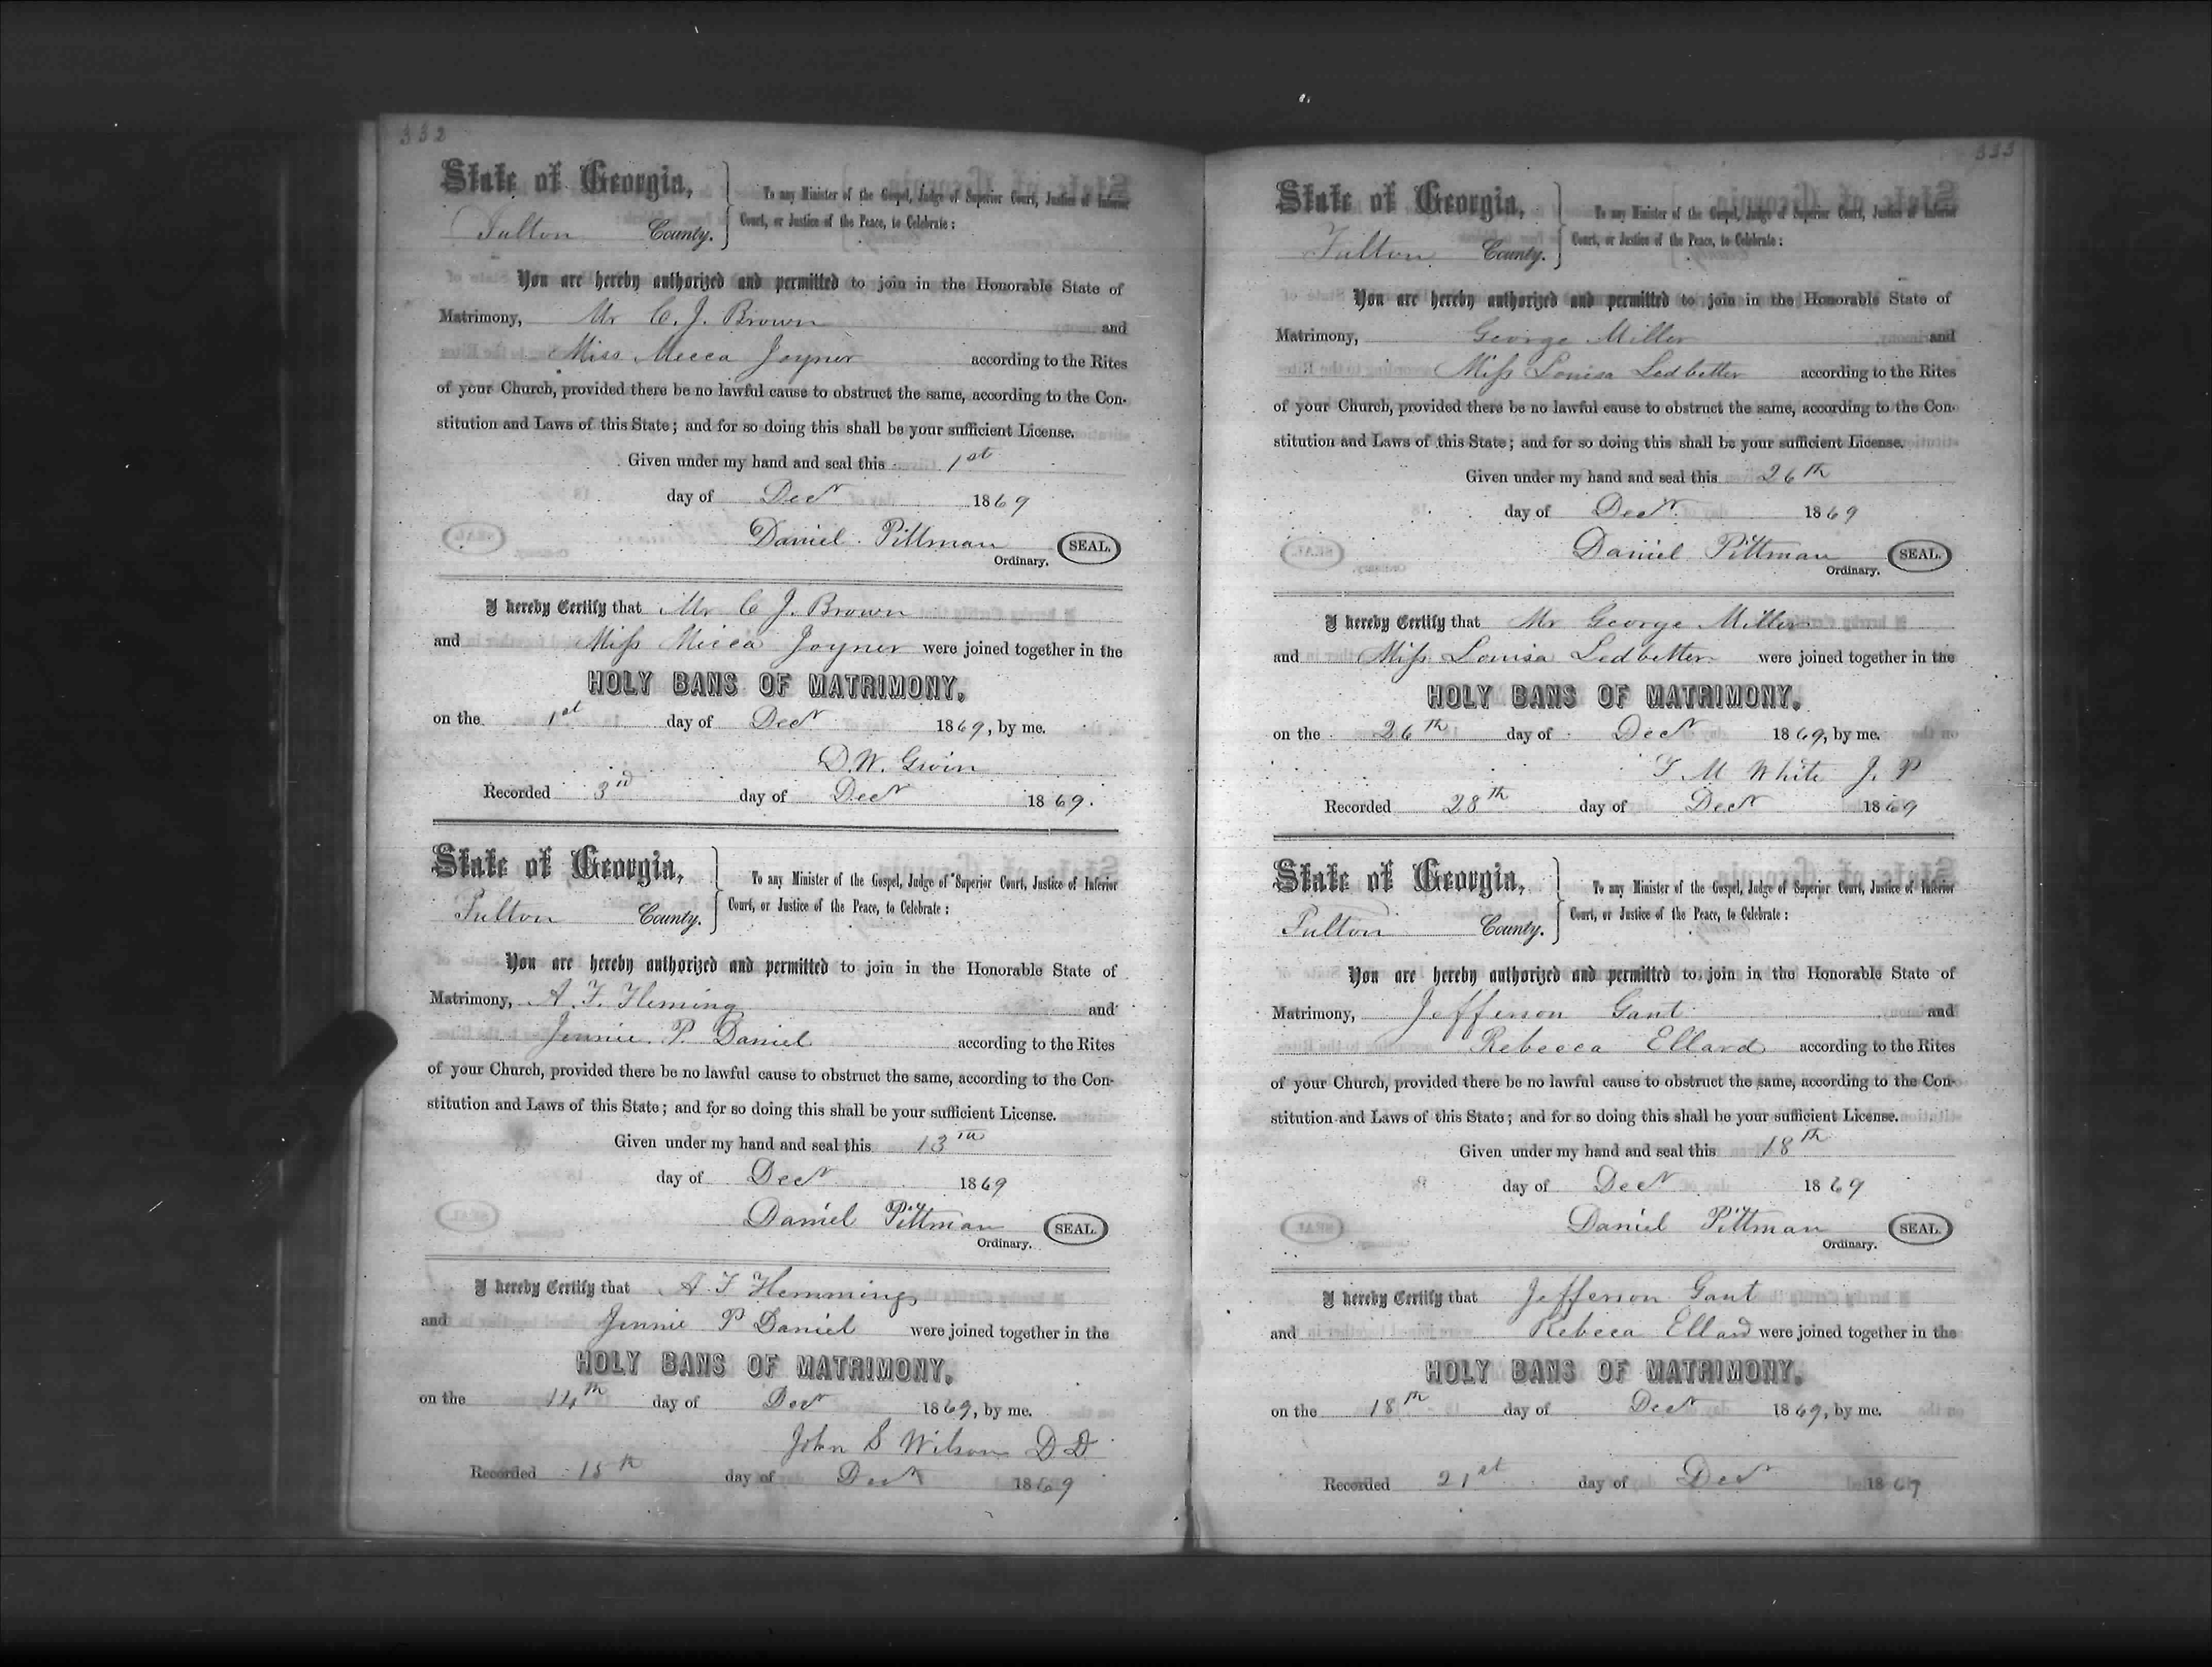 332
State of Georgia,
Fulton County.
To any Minister of the Gospel, Judge of Superior Court, Justice of Inferior
Court, or Justice of the Peace, to Celebrate:
You are hereby authorized and permitted to join in the Honorable State of
Matrimony, Mr C. J. Brown and
Miss Mecca Joyner according to the Rites
of your Church, provided there be no lawful cause to obstruct the same, according to the Con-
stitution and Laws of this State; and for so doing this shall be your sufficient License.
Given under my hand and seal this 1st
day of Decr 1869
Daniel Pittman SEAL.
Ordinary.
I hereby Certify that Mr C J. Brown
and Miss Mecca Joyner were joined together in the
HOLY BANS OF MATRIMONY,
on the 1st day of Decr 1869, by me.
D. W. Gwin
Recorded 3rd day of Decr 1869.
State of Georgia,
Fulton County.
To any Minister of the Gospel, Judge of Superior Court, Justice of Inferior
Court, or Justice of the Peace, to Celebrate:
You are hereby authorized and permitted to join in the Honorable State of
Matrimony, A. F. Fleming and
Jennie P. Daniel according to the Rites
of your Church, provided there be no lawful cause to obstruct the same, according to the Con-
stitution and Laws of this State; and for so doing this shall be your sufficient License.
Given under my hand and seal this 13th
day of Decr 1869
Daniel Pittman SEAL.
Ordinary.
I hereby Certify that A F Flemming
and Jennie P Daniel were joined together in the
HOLY BANS OF MATRIMONY,
on the 14th day of Decr 1869, by me.
John S Wilson D D
Recorded 15th day of Decr 1869
333
State of Georgia,
Fulton County.
To any Minister of the Gospel, Judge of Superior Court, Justice of Inferior
Court, or Justice of the Peace, to Celebrate:
You are hereby authorized and permitted to join in the Honorable State of
Matrimony, George Miller and
Miss Louisa Ledbetter according to the Rites
of your Church, provided there be no lawful cause to obstruct the same, according to the Con-
stitution and Laws of this State; and for so doing this shall be your sufficient License.
Given under my hand and seal this 26th
day of Decr 1869
Daniel Pittman SEAL.
Ordinary.
I hereby Certify that Mr George Miller
and Miss Louisa Ledbetter were joined together in the
HOLY BANS OF MATRIMONY,
on the 26th day of Decr 1869, by me.
T. M White J. P
Recorded 28th day of Decr 1869
State of Georgia,
Fulton County.
To any Minister of the Gospel, Judge of Superior Court, Justice of Inferior
Court, or Justice of the Peace, to Celebrate:
You are hereby authorized and permitted to join in the Honorable State of
Matrimony, Jefferson Gant and
Rebecca Ellard according to the Rites
of your Church, provided there be no lawful cause to obstruct the same, according to the Con-
stitution and Laws of this State; and for so doing this shall be your sufficient License.
Given under my hand and seal this 18th
day of Decr 1869
Daniel Pittman SEAL.
Ordinary.
I hereby Certify that Jefferson Gant
and Rebeca Ellard were joined together in the
HOLY BANS OF MATRIMONY,
on the 18th day of Decr 1869, by me.
Recorded 21st day of Decr 1869